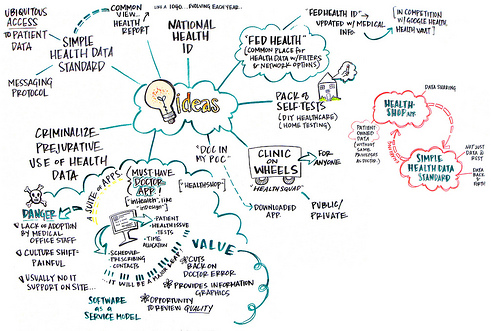 UBIQUITOUS
ACCESS
TO PATIENT
DATA
MESSAGING
PROTOCOL
SIMPLE
HEALTH DATA
STANDARD
COMMON
VIEW...
HEALTH
REPORT
LIKE A 1040... EVOLVING EACH YEAR...
NATIONAL
HEALTH
ID
ideas
"FED HEALTH"
(COMMON PLACE for
HEALTH DATA w/FILTERS
& NETWORK OPTIONS)
"FEDHEALTH ID"
UPDATED w/MEDICAL
INFO
[IN COMPETITION
w/GOOGLE HEALTH,
HEALTH VAULT]
PACK of
SELF-TESTS
(DIY HEALTHCARE)
(HOME TESTING)
CLINIC
ON
WHEELS
"HEALTH SQUAD"
FOR
ANYONE
PUBLIC/
PRIVATE.
"DOC IN
MY POC"
DOWNLOADED
APP.
CRIMINALIZE
PREJURATIVE
USE OF HEALTH
DATA
DATA SHARING
HEALTH-
SHOP APP.
PATIENT
OWNED
DATA
(WITHOUT
SAME
PRIVILEGES
AS DOCTOR)
SIMPLE
HEALTH DATA
STANDARD
NOT JUST
DATA @
REST
DATA
BACK &
FORTH
A SUITE of APPS.
MUST-HAVE
DOCTOR
APP!
["inHealth", like
"inDesign"]
["HEALTHSHOP"]
PATIENT
HEALTH ISSUE
TESTS
TIME
ALLOCATION
SCHEDULE
PRESCRIBING
CONTACTS
...IT WILL BE A MAJOR LEAP!
DANGER
LACK of ADOPTION
BY MEDICAL
OFFICE STAFF
CULTURE SHIFT=
PAINFUL
USUALLY NO IT
SUPPORT ON SITE...
VALUE
CUTS
BACK ON
DOCTOR ERROR
PROVIDES INFORMATION
GRAPHICS
OPPORTUNITY
TO REVIEW QUALITY
SOFTWARE
as a
SERVICE MODEL